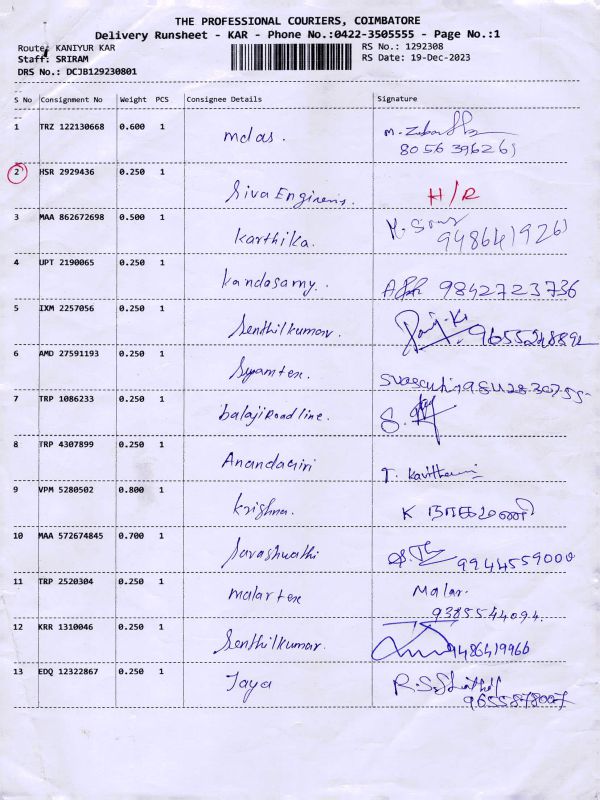 THE PROFESSIONAL COURIERS, COIMBATORE
Delivery Runsheet - KAR - Phone No.:0422-3505555 - Page No.:1
Route: KANIYUR KAR RS No.: 1292308
Staff: SRIRAM RS Date: 19-Dec-2023
DRS No.: DCJB129230801
S No Consignment No Weight PCS Consignee Details Signature
1 TRZ 122130668 0.600 1 mdas.
8056396261
2 HSR 2929436 0.250 1 Siva Enginers. H/R
3 MAA 862672698 0.500 1 Karthika.
9486419261
4 UPT 2190065 0.250 1 Kandasamy. 9842723736
5 IXM 2257056 0.250 1 Senthilkumar. 9655248892
6 AMD 27591193 0.250 1 Syamtex.
7 TRP 1086233 0.250 1 balaji Road line.
8 TRP 4307899 0.250 1 Anandagiri T.
9 VPM 5280502 0.800 1 Krishna. K நாகமணி
10 MAA 572674845 0.700 1 Sarashwathi 9944559000
11 TRP 2520304 0.250 1 malartex Malar.
9385544094.
12 KRR 1310046 0.250 1 Senthilkumar. 9486419966
13 EDQ 12322867 0.250 1 Jaya
9655878007